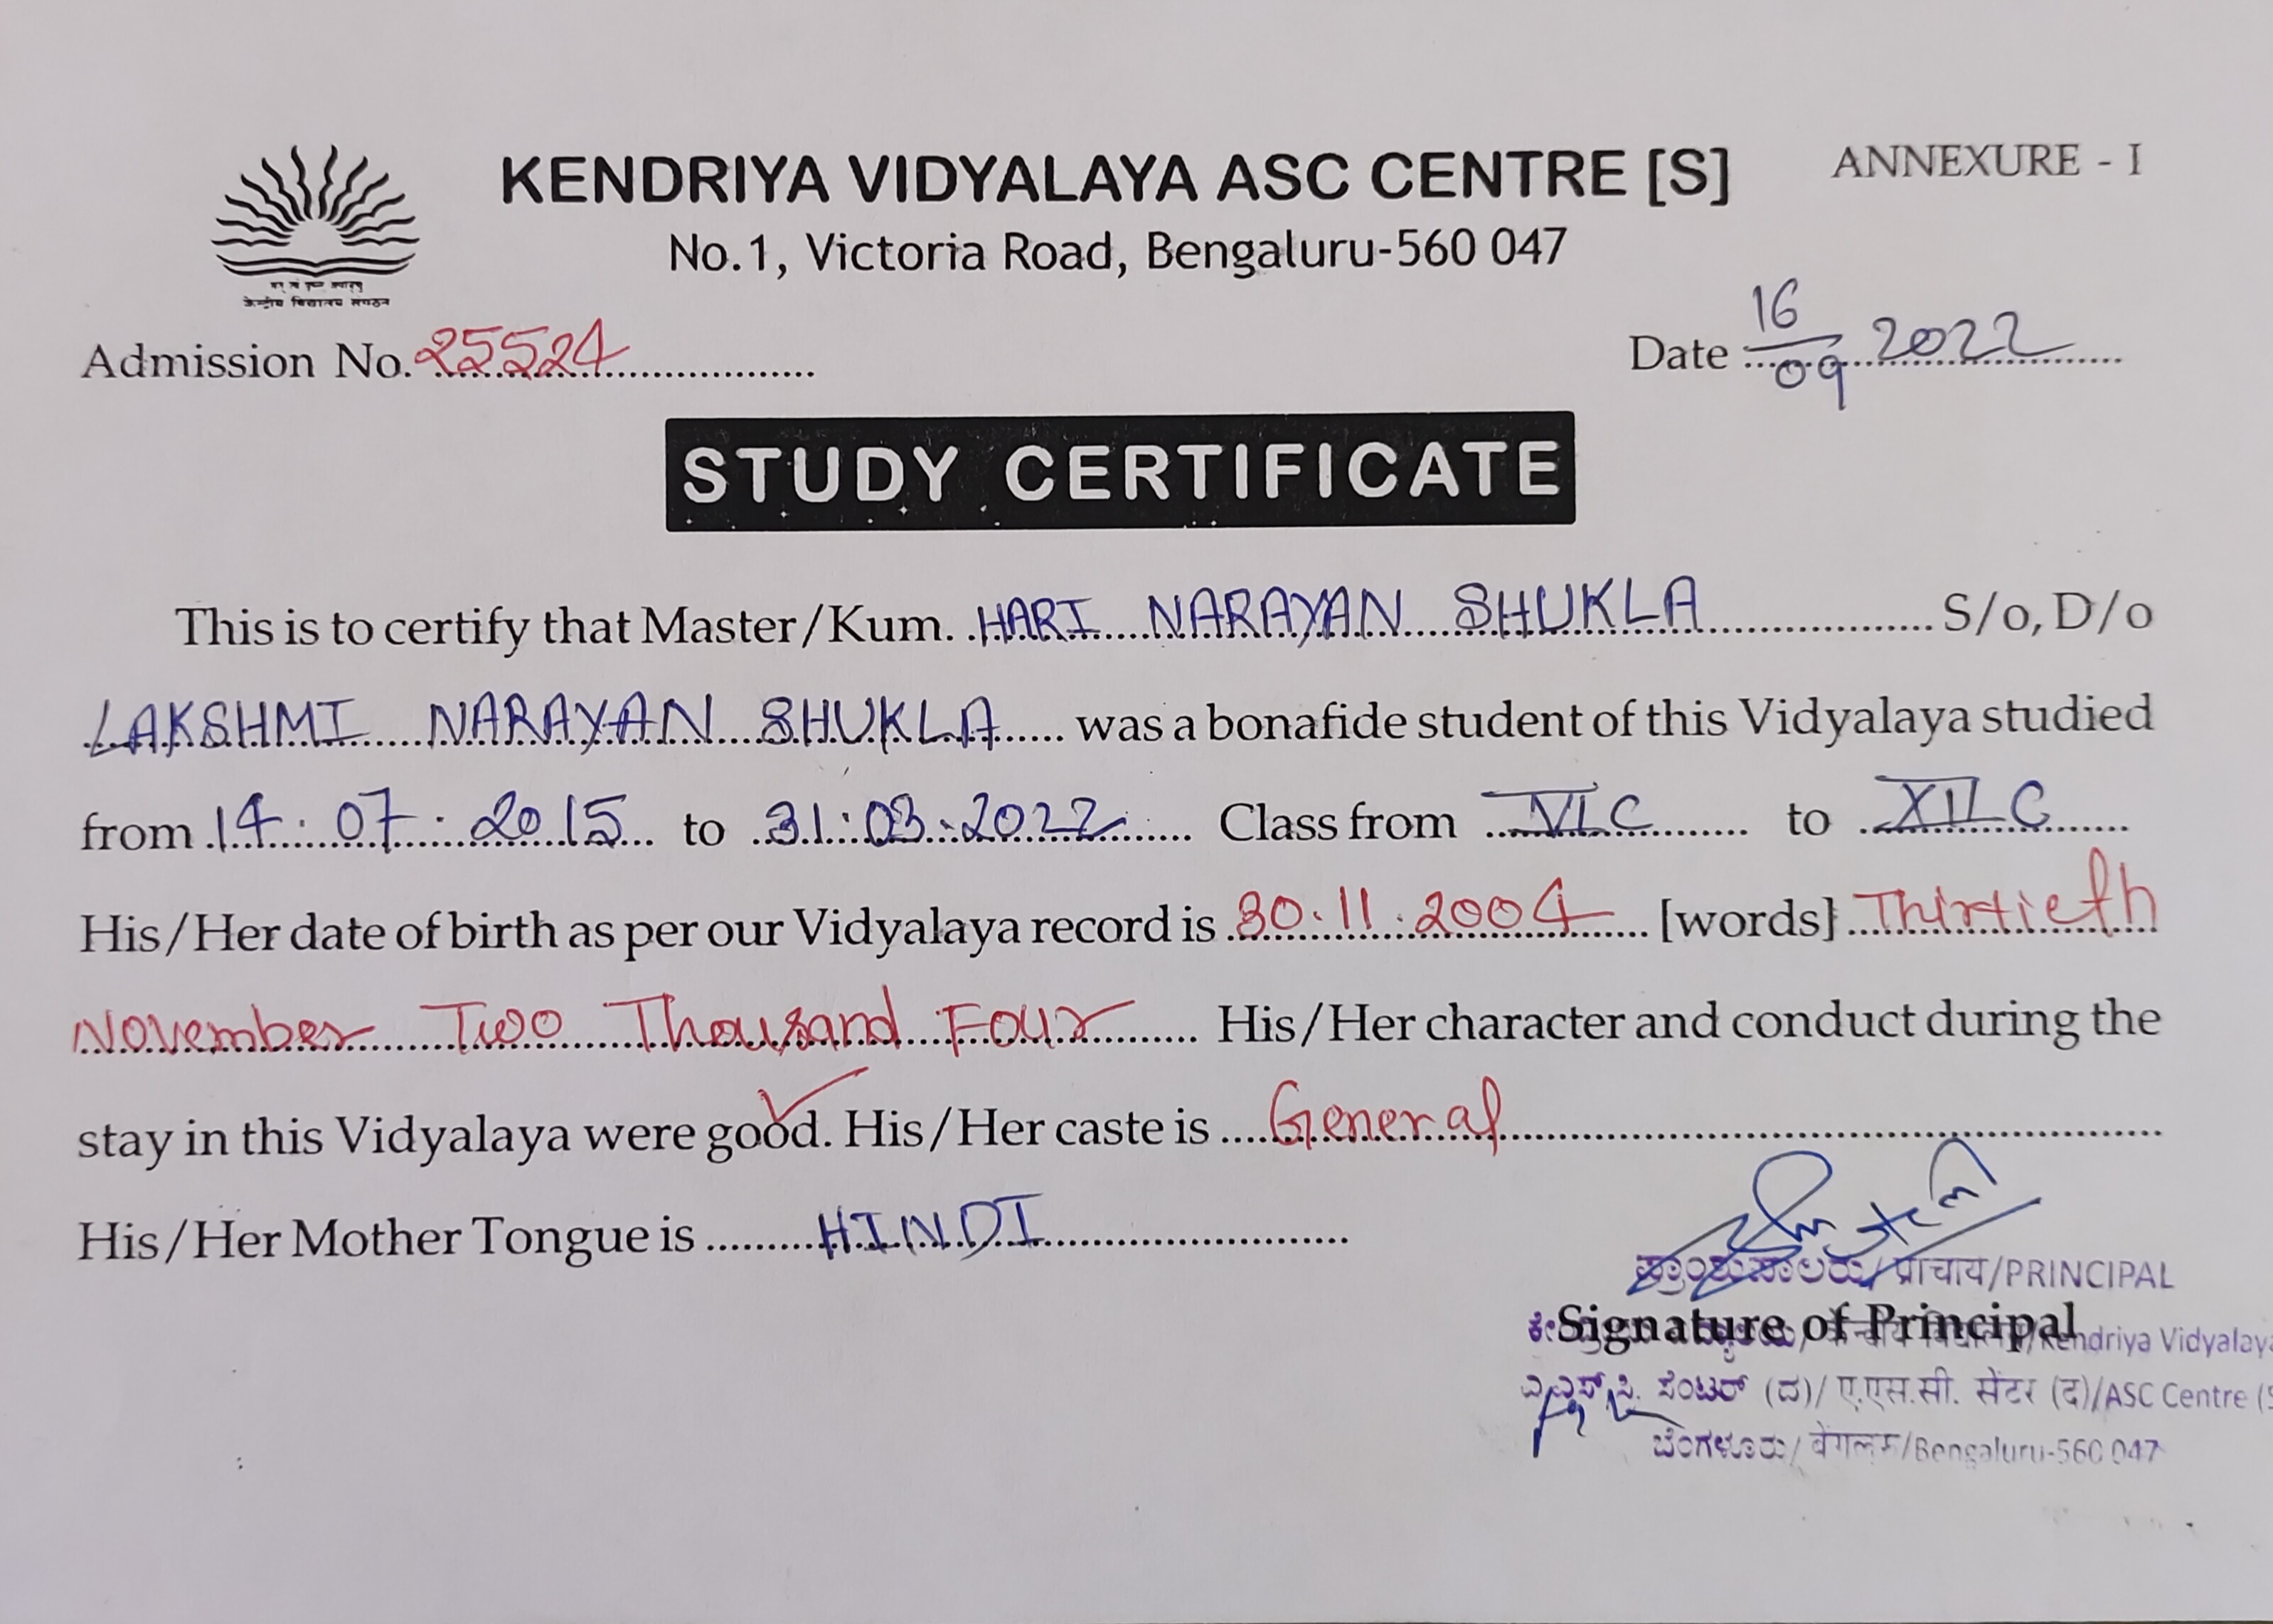 KENDRIYA VIDYALAYA ASC CENTRE [S]
ANNEXURE - I
No.1, Victoria Road, Bengaluru-560 047
केन्द्रीय विद्यालय संगठन
Admission No. 25524
Date 16/09 2022
STUDY CERTIFICATE
This is to certify that Master/Kum. HARI NARAYAN SHUKLA S/o, D/o
LAKSHMI NARAYAN SHUKLA was a bonafide student of this Vidyalaya studied
from 14.07.2015 to 31.03.2022 Class from VI C to XII C
His/Her date of birth as per our Vidyalaya record is 30.11.2004 [words] Thirtieth
November Two Thousand Four His/Her character and conduct during the
stay in this Vidyalaya were good. His/Her caste is General
His/Her Mother Tongue is HINDI
प्राचार्य/PRINCIPAL
Signature of Principal
Kendriya Vidyalaya
ಎ.ಎಸ್.ಸಿ. ಸೆಂಟರ್ (ದ)/ ए.एस.सी. सेंटर (द)/ASC Centre (S
ಬೆಂಗಳೂರು/ बेंगलूरु/Bengaluru-560 047